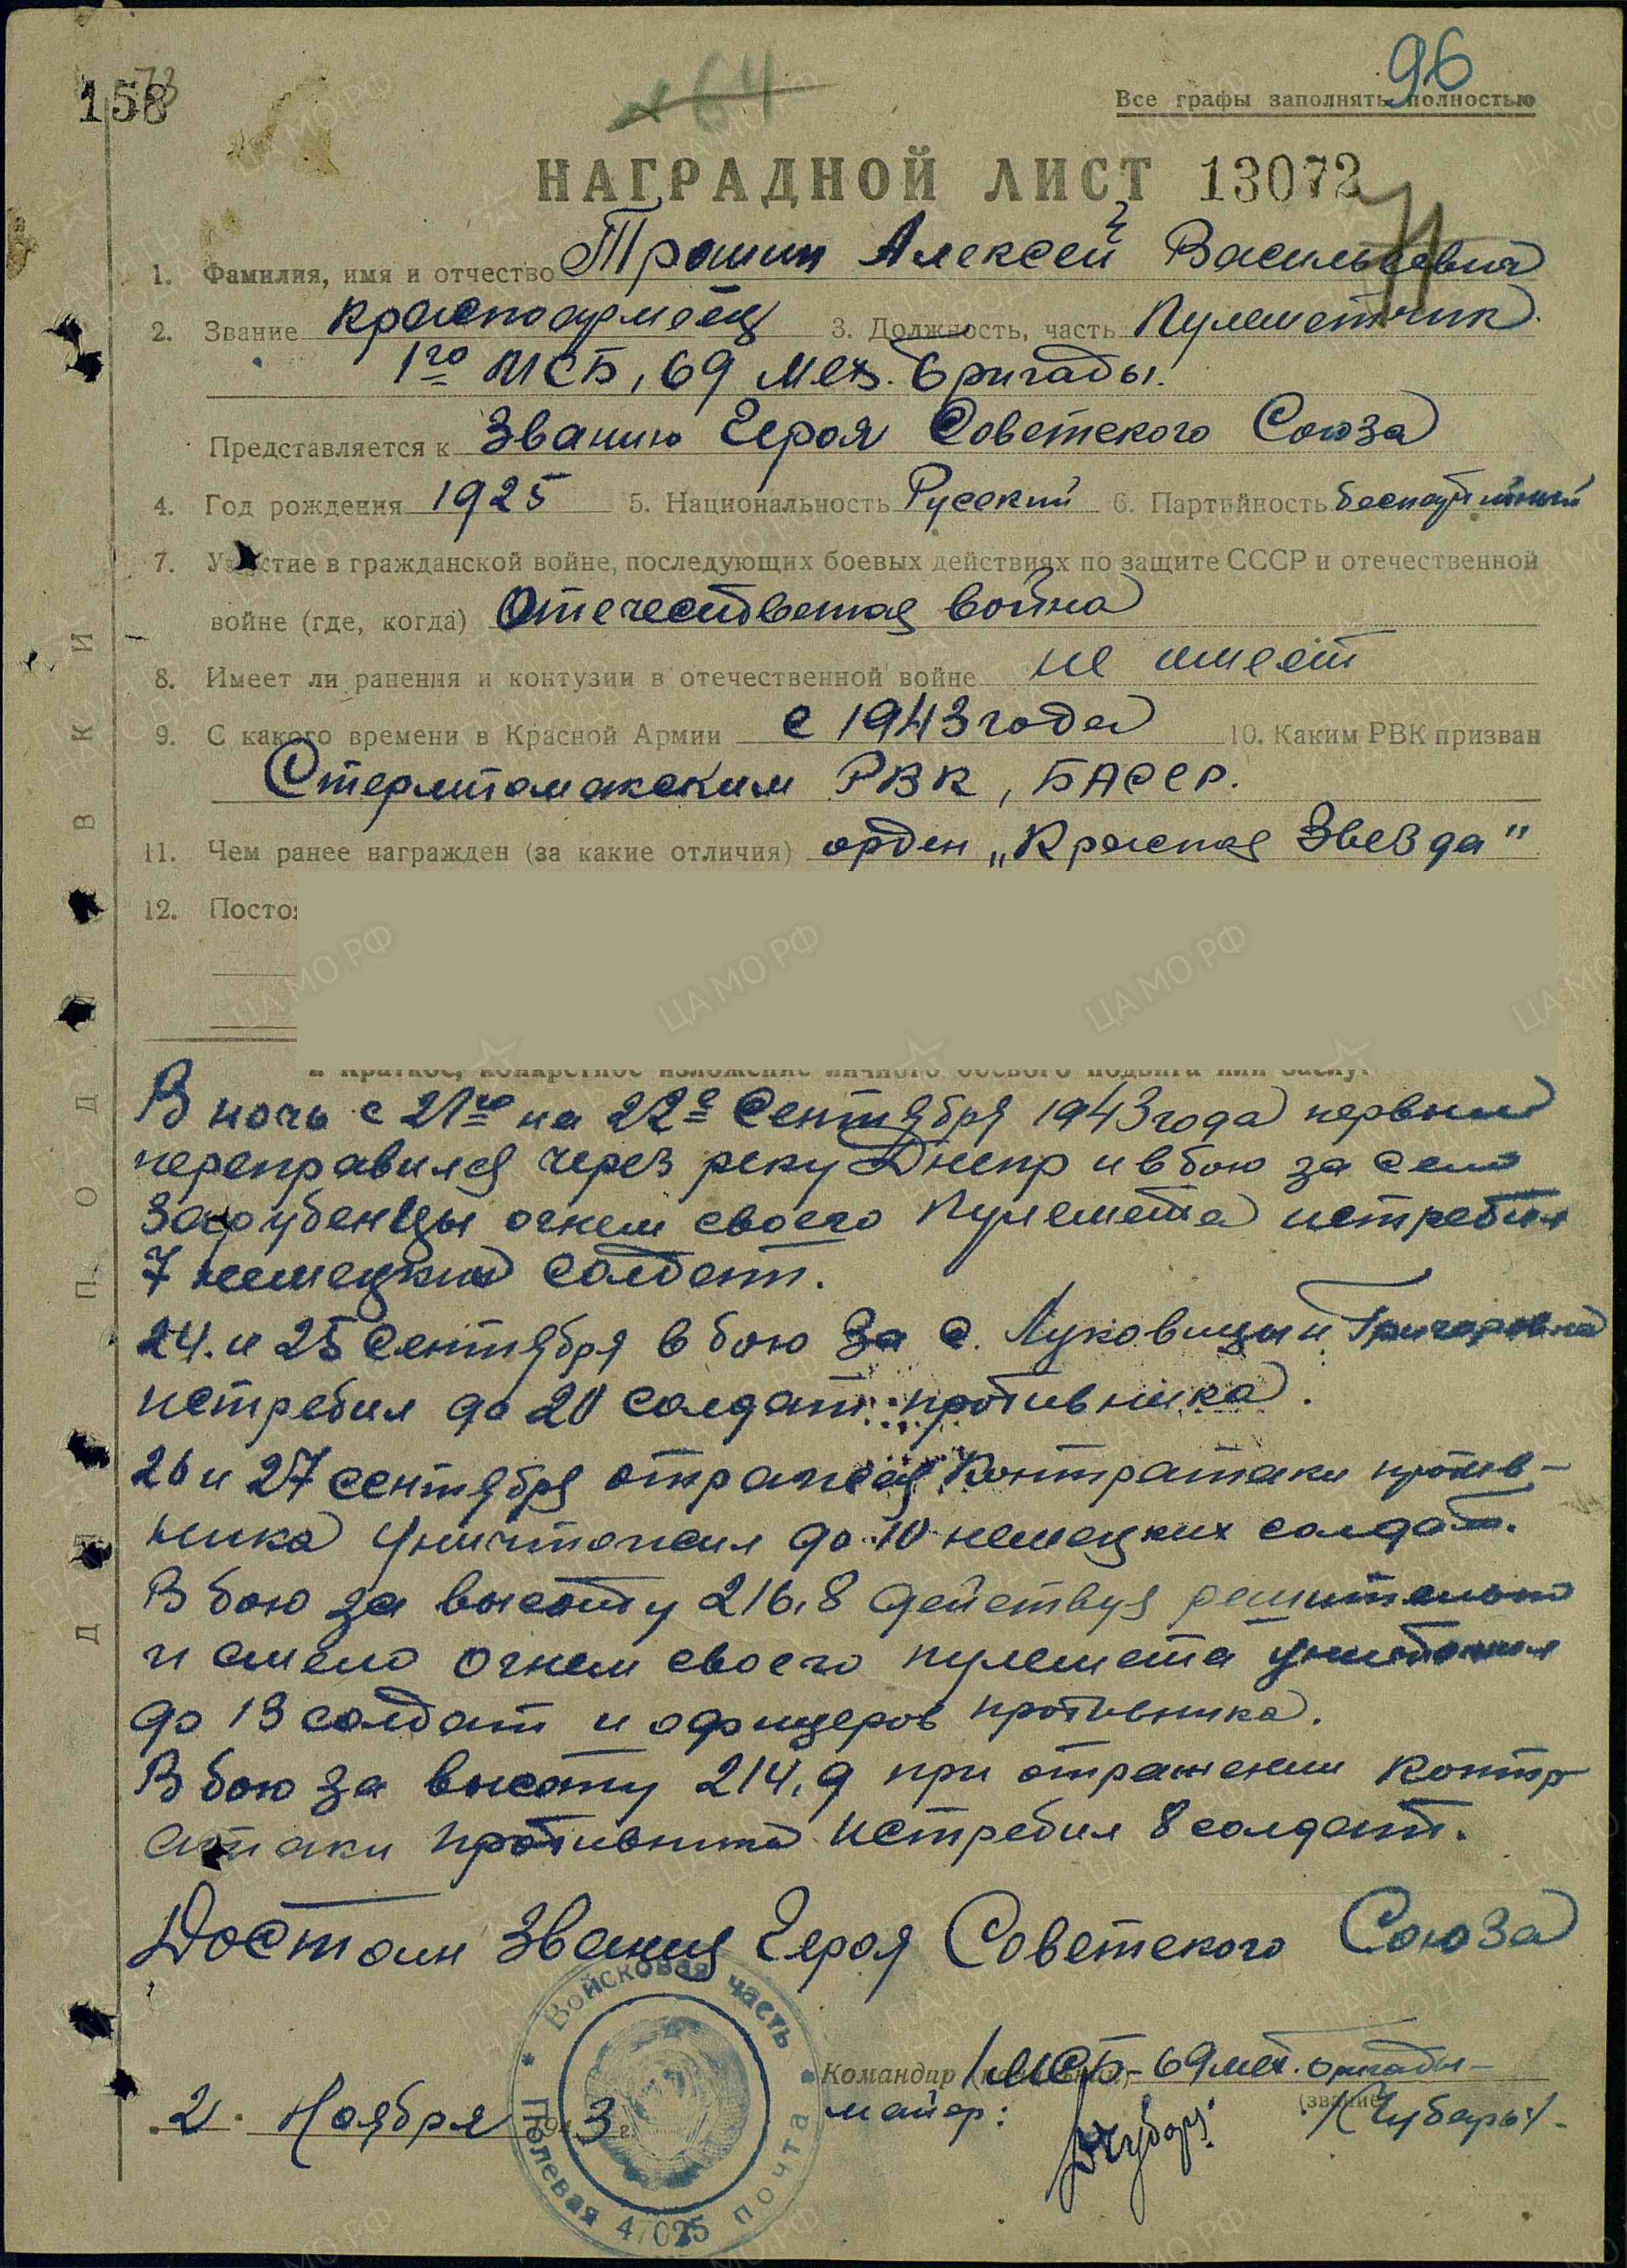 96
158
73
64
Все графы заполнять полностью
НАГРАДНОЙ ЛИСТ 13072
1. Фамилия, имя и отчество Трошин Алексей Васильевич
2. Звание красноармеец 3. Должность, часть Пулеметчик
1го МСБ, 69 Мех. бригады.
Представляется к Званию Героя Советского Союза
4. Год рождения 1925 5. Национальность Русский 6. Партийность беспартийный
7. Участие в гражданской войне, последующих боевых действиях по защите СССР и отечественной
войне (где, когда) Отечественная война
8. Имеет ли ранения и контузии в отечественной войне не имеет
9. С какого времени в Красной Армии с 1943 года 10. Каким РВК призван
Стерлитамакским РВК, БАССР.
11. Чем ранее награжден (за какие отличия) орден „Красная Звезда"
12. Посто
Краткое, конкретное изложение личного боевого подвига или заслуг
В ночь с 21го на 22е Сентября 1943 года первым
переправился через реку Днепр и в бою за село
Зарубенцы огнем своего пулемета истребил
7 немецких солдат.
24. и 25 Сентября в бою за с. Луковицы и Григоровка
истребил до 20 солдат противника.
26 и 27 сентября отражая контратаки против-
ника уничтожил до 10 немецких солдат.
В бою за высоту 216,8 действуя решительно
и смело огнем своего пулемета уничтожил
до 13 солдат и офицеров противника.
В бою за высоту 214,9 при отражении контр
атаки противника истребил 8 солдат.
Достоин Звания Героя Советского Союза
Войсковая часть
Полевая почта
47025
Командир 1 МСБ - 69 мех. бригады -
майор: /Чубарь/-
(звание)
2. Ноября 1943 г.
ДЛЯ ПОДШИВКИ
ЦАМО РФ